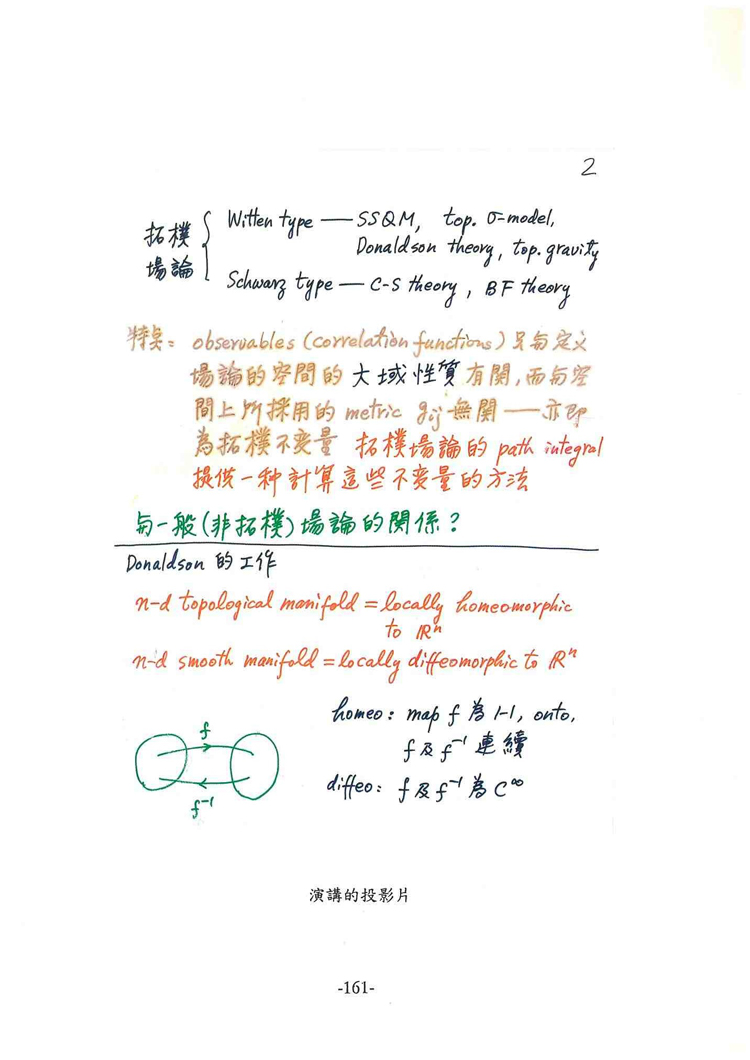 2
拓樸場論 { Witten type — SSQM, top. σ-model,
Donaldson theory, top. gravity
Schwarz type — C-S theory, BF theory
特點: observables (correlation functions) 只与定义
場論的空間的大域性質有関,而与空
間上所採用的 metric gij 無関 — 亦即
為拓樸不变量 拓樸場論的 path integral
提供一种計算這些不变量的方法
与一般(非拓樸)場論的関係?
Donaldson 的工作
n-d topological manifold = locally homeomorphic
to ℝⁿ
n-d smooth manifold = locally diffeomorphic to ℝⁿ
homeo: map f 為 1-1, onto,
f 及 f⁻¹ 連續
diffeo: f 及 f⁻¹ 為 C∞
f
f⁻¹
演講的投影片
-161-